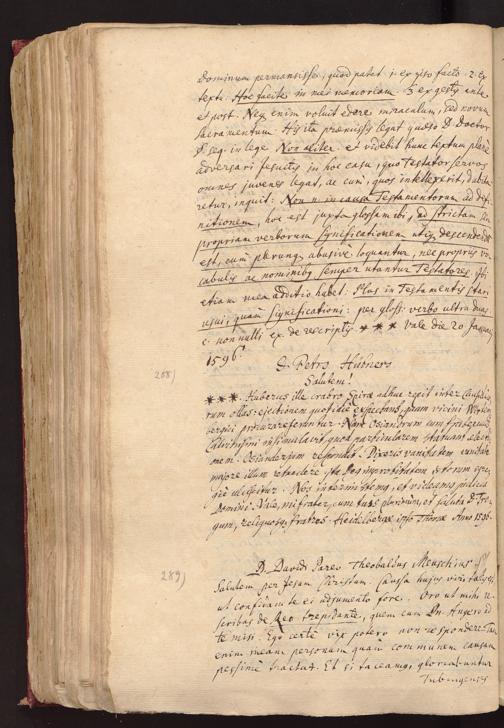 Dominum permansisse, quod patet 1. ex ipso facto. 2. ex
textu. Hoc facite in mei memoriam. 3. ex gestis ante
et post. Neque enim voluit edere miraculum, sed novum
Sacramentum. His ita praemissis legat quaeso D. Doctor
seq. in lege Non aliter. et videbit hunc textum plane
adversari Jesuitis in hoc casu, quo Testator servos
omnes juvenes legat, ac cum, quos intellexerit, dubita
retur, inquit: Non in causa Testamentorum ad defi
nitionem, hoc est juxta glossam ibi, ad strictam seu
propriam verborum significationem utique descendendum
est, cum plerumque abusive loquantur, nec propriis vo
cabulis ac nominibus semper utantur Testatores. Ibi
etiam mea additio habet. Plus in Testamentis stari
usui, quam significationi: per gloss. verbo ultra duas
c. nonnulli ex. de rescriptis * * * Vale die 20 Januarii
1596.
D. Petro Hübnero
288)
Salutem!
* * * Huberus ille crabro Spirae adhuc regit inter
rum ollas: ejectionem quotidie expectans, quam vicini Wirtem
bergici procurare feruntur. Nam Osiandrum cum
Calvinismi insimulavit, quod particularem statuant electi
onem. Osiander respondit. Pixerus vanitatem
majore illum retundere. Ita Deus improbitatem istorum egre
gie ulciscitur. Nos interim stemus, et videamus judicia
Domini. Vale, mi frater, cum tuis plurimum, et saluta D.
gum, reliquosque fratres. Heidelbergae ipso Thomae Anno 1596.
289)
D. Davidi Pareo Theobaldus Meuschius
Salutem per Jesum Christum. Causa hujus viri talis est
ut confidam te ei adjumento fore. Oro ut mihi re
scribas de Reo trepidante, quem cum Dn. Angero ad
te misi. Ego certe vix potero non respondere. Tum
enim meam personam quam communem causam
pessime tractat. Et si taceamus, gloriabuntur
Tubingenses